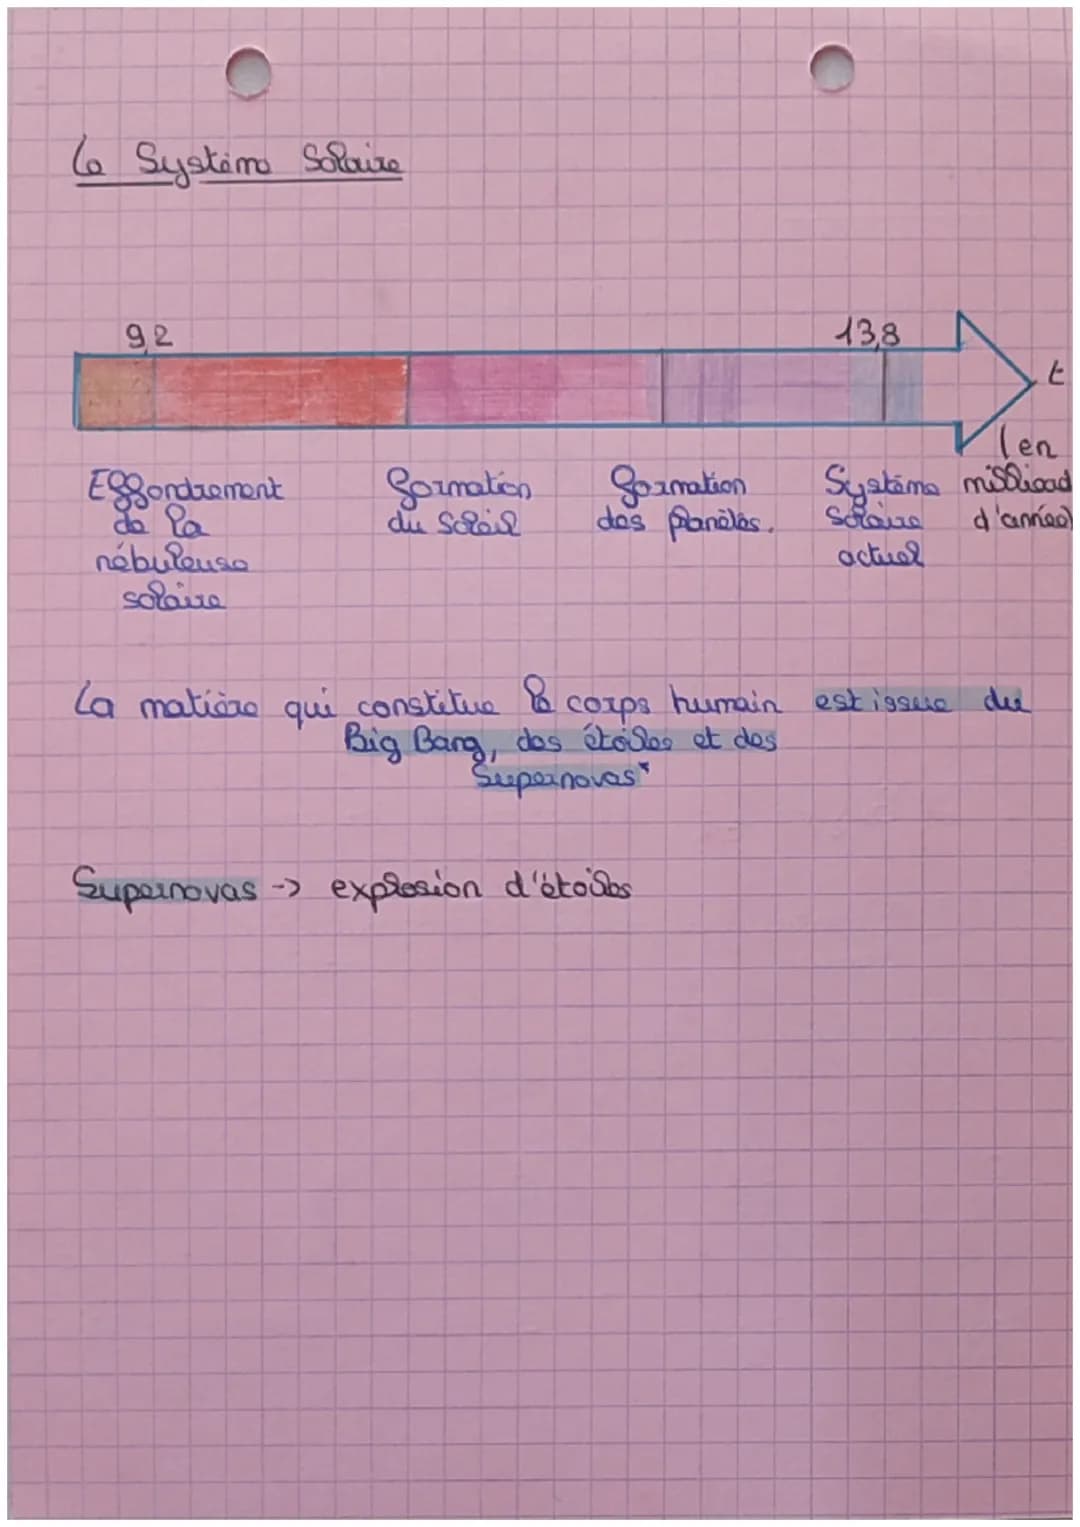 Le Système Solaire
9,2
13,8
t
(en milliard d'année)
Effondrement
de la
nébuleuse
solaire
formation
du Soleil
formation
des planètes.
Système
Solaire
actuel
La matière qui constitue le corps humain est issue du
Big Bang, des étoiles et des
Supernovas*
Supernovas -> explosion d'étoiles